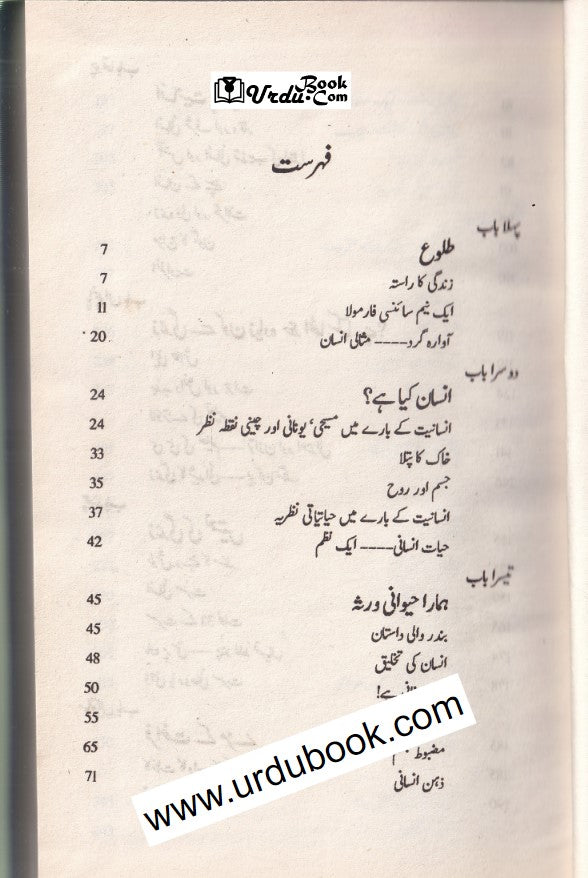 Urdu Book.Com
فہرست
پہلا باب
طلوع 7
زندگی کا راستہ 7
ایک نیم سائنسی فارمولا 11
آوارہ گرد---- مثالی انسان 20
دوسرا باب
انسان کیا ہے؟ 24
انسانیت کے بارے میں مسیحی' یونانی اور چینی نقطہ نظر 24
خاک کا پتلا 33
جسم اور روح 35
انسانیت کے بارے میں حیاتیاتی نظریہ 37
حیات انسانی---- ایک نظم 42
تیسرا باب
ہمارا حیوانی ورثہ 45
بندر والی داستان 45
انسان کی تخلیق 48
ہے! 50
55
مضبوط 65
ذہن انسانی 71
www.urdubook.com